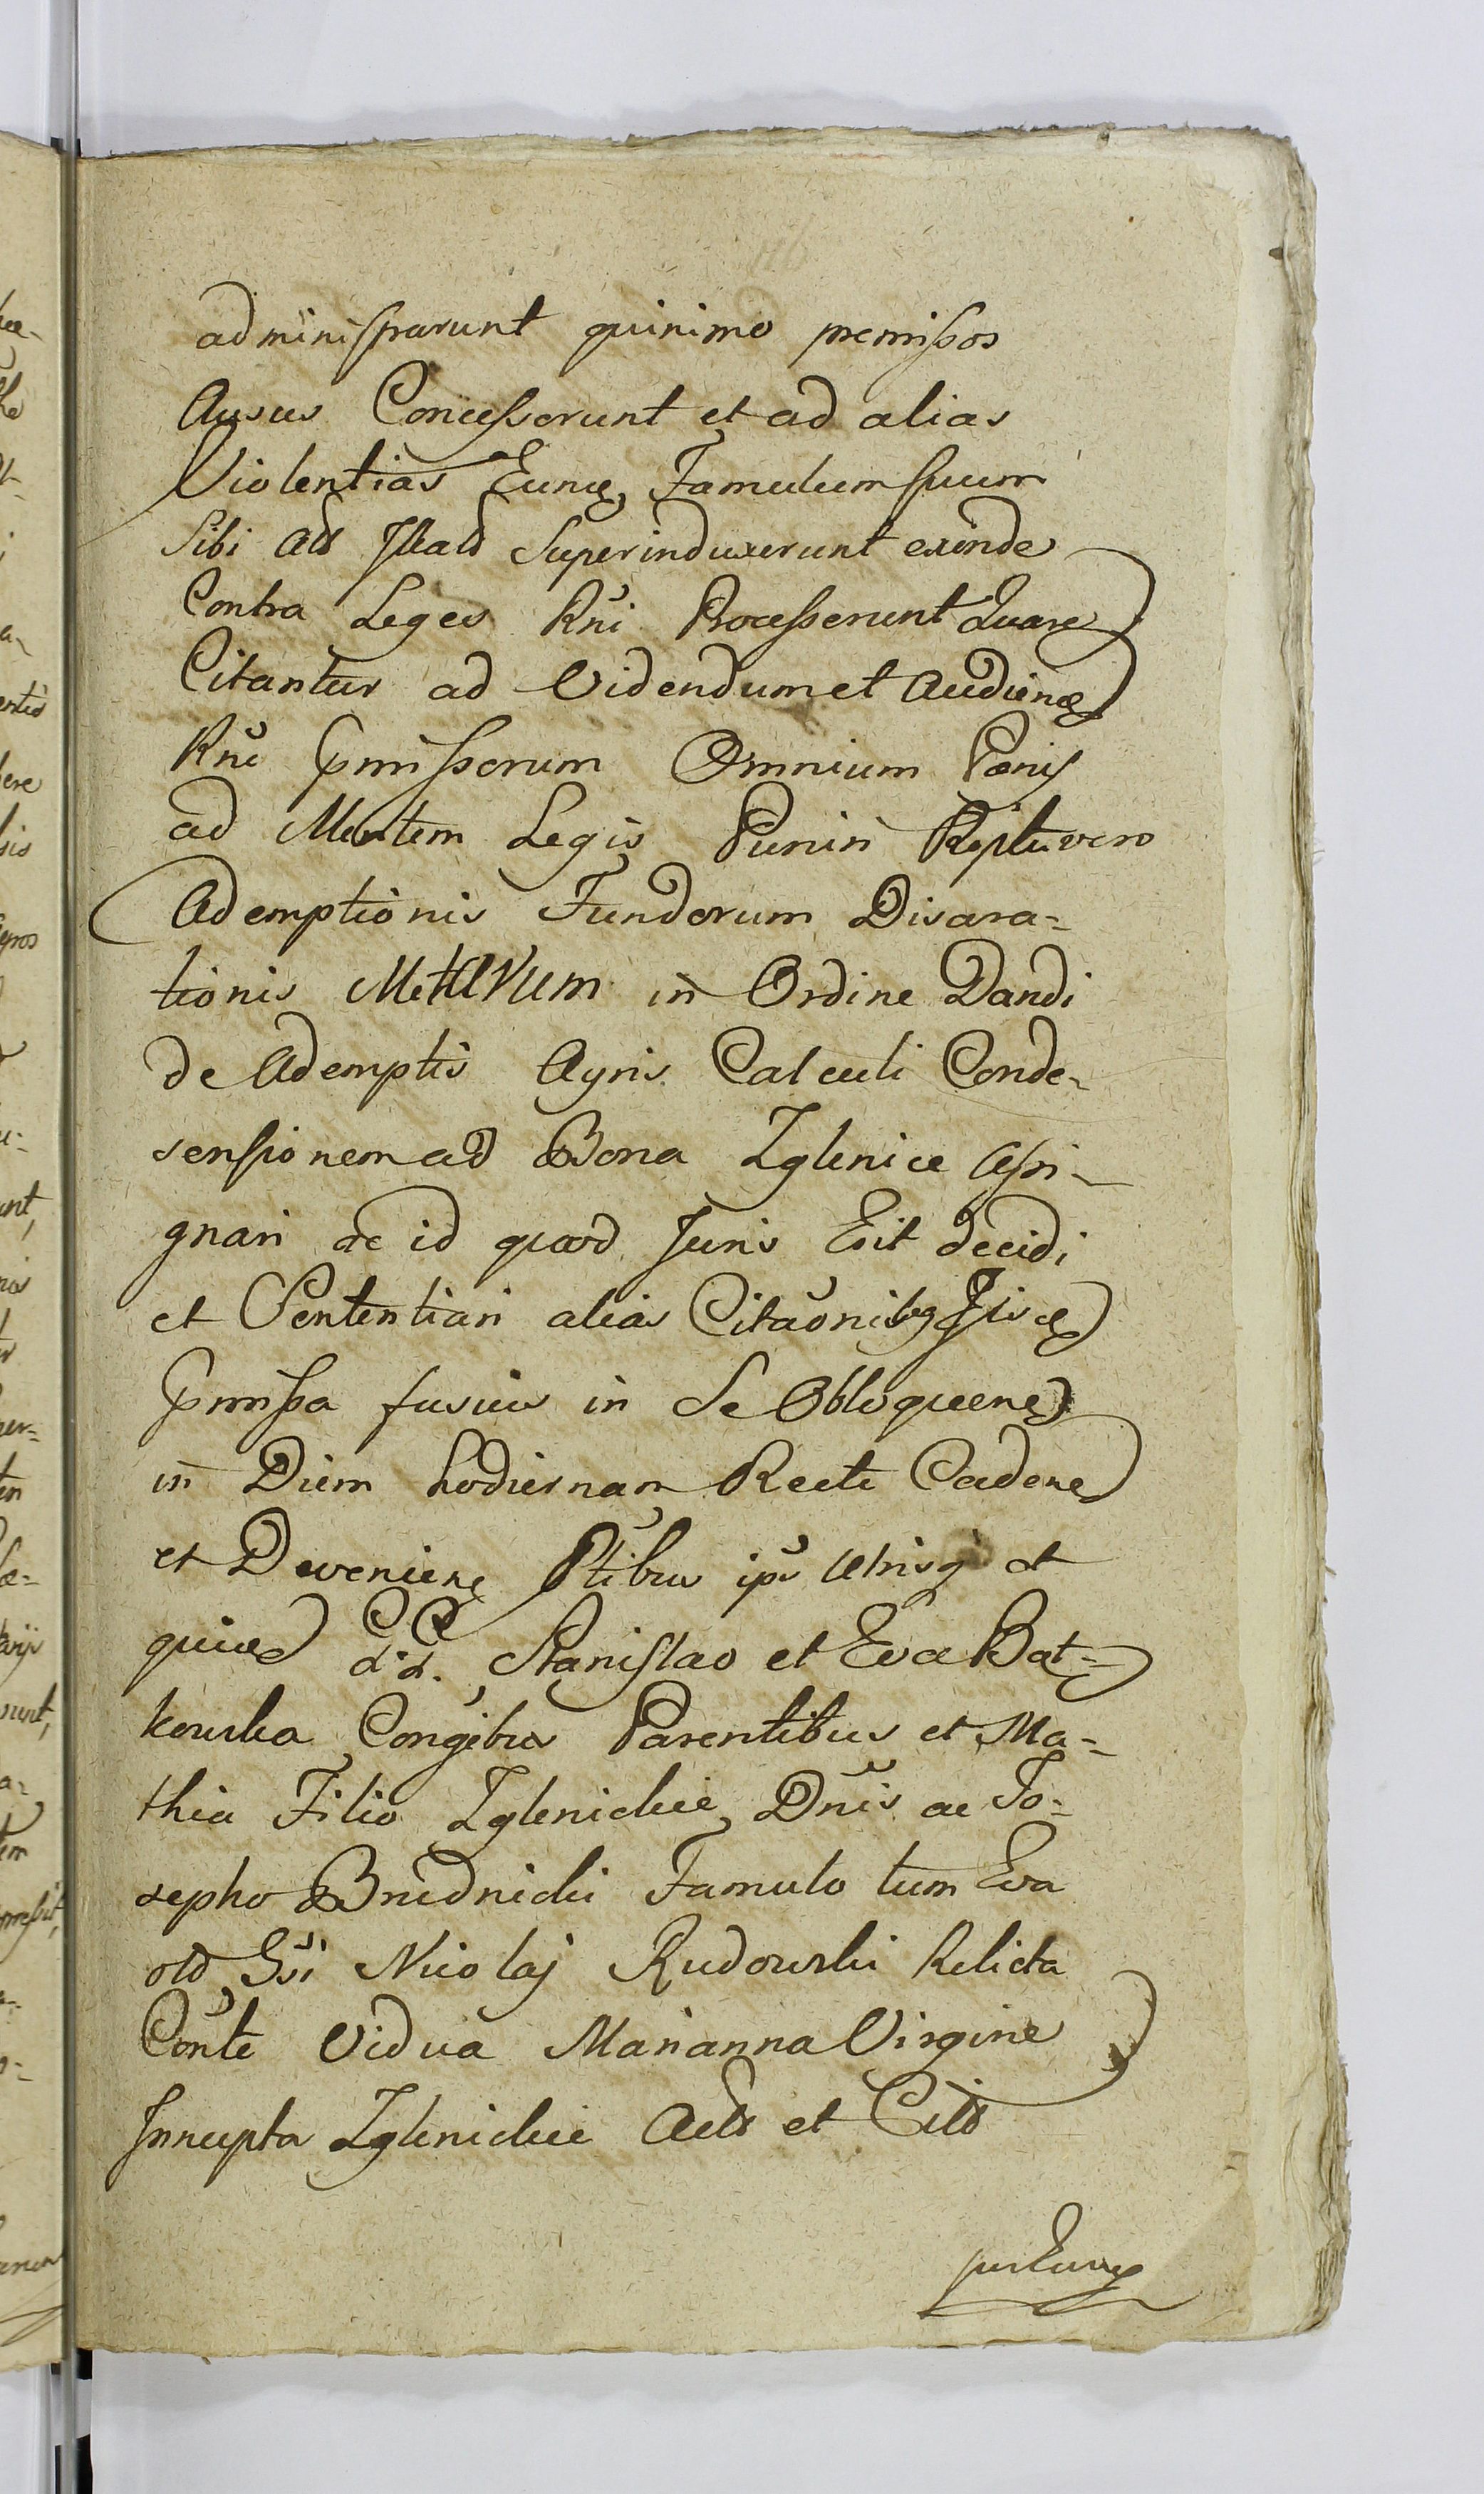 administrarunt quinimo premissos
Ausus Concesserunt et ad alias
Violentias Eunq Famulum suum
Sibi Superinduxerunt exinde
Contra Leges Rni Processerunt Quare
Citantur ad Videndum et Audiend
Rni pmissorum Omnium Pænis
ad Mentem Legis Puniri Rsptu vero
Ademptionis Fundorum Disara-
tionis Metarum in Ordine Dandi
de Ademptis Agris Calculi Conde-
sensionem ad Bona Zglenice Assi-
gnari ac id quod Juris Erit decidi
et Sententiari alias Citaonibq
pmissa fusius in Se Obloquene
in Diem hodiernam Recte Cadene
et Deveniene Ptibus ips utrisq et
quidem d. d. Stanislao et Eva Bat-
kowska Congibus Parentibus et Ma-
thia Filio Zglenickie Dnis ac Jo-
sepho Brudnicki Famulo tum Eva
old Gsi Nicolaj Rudowski Relicta
Conte Vidua Marianna Virgine
Innupta Zglenickie Actis et Citis
per Eunq